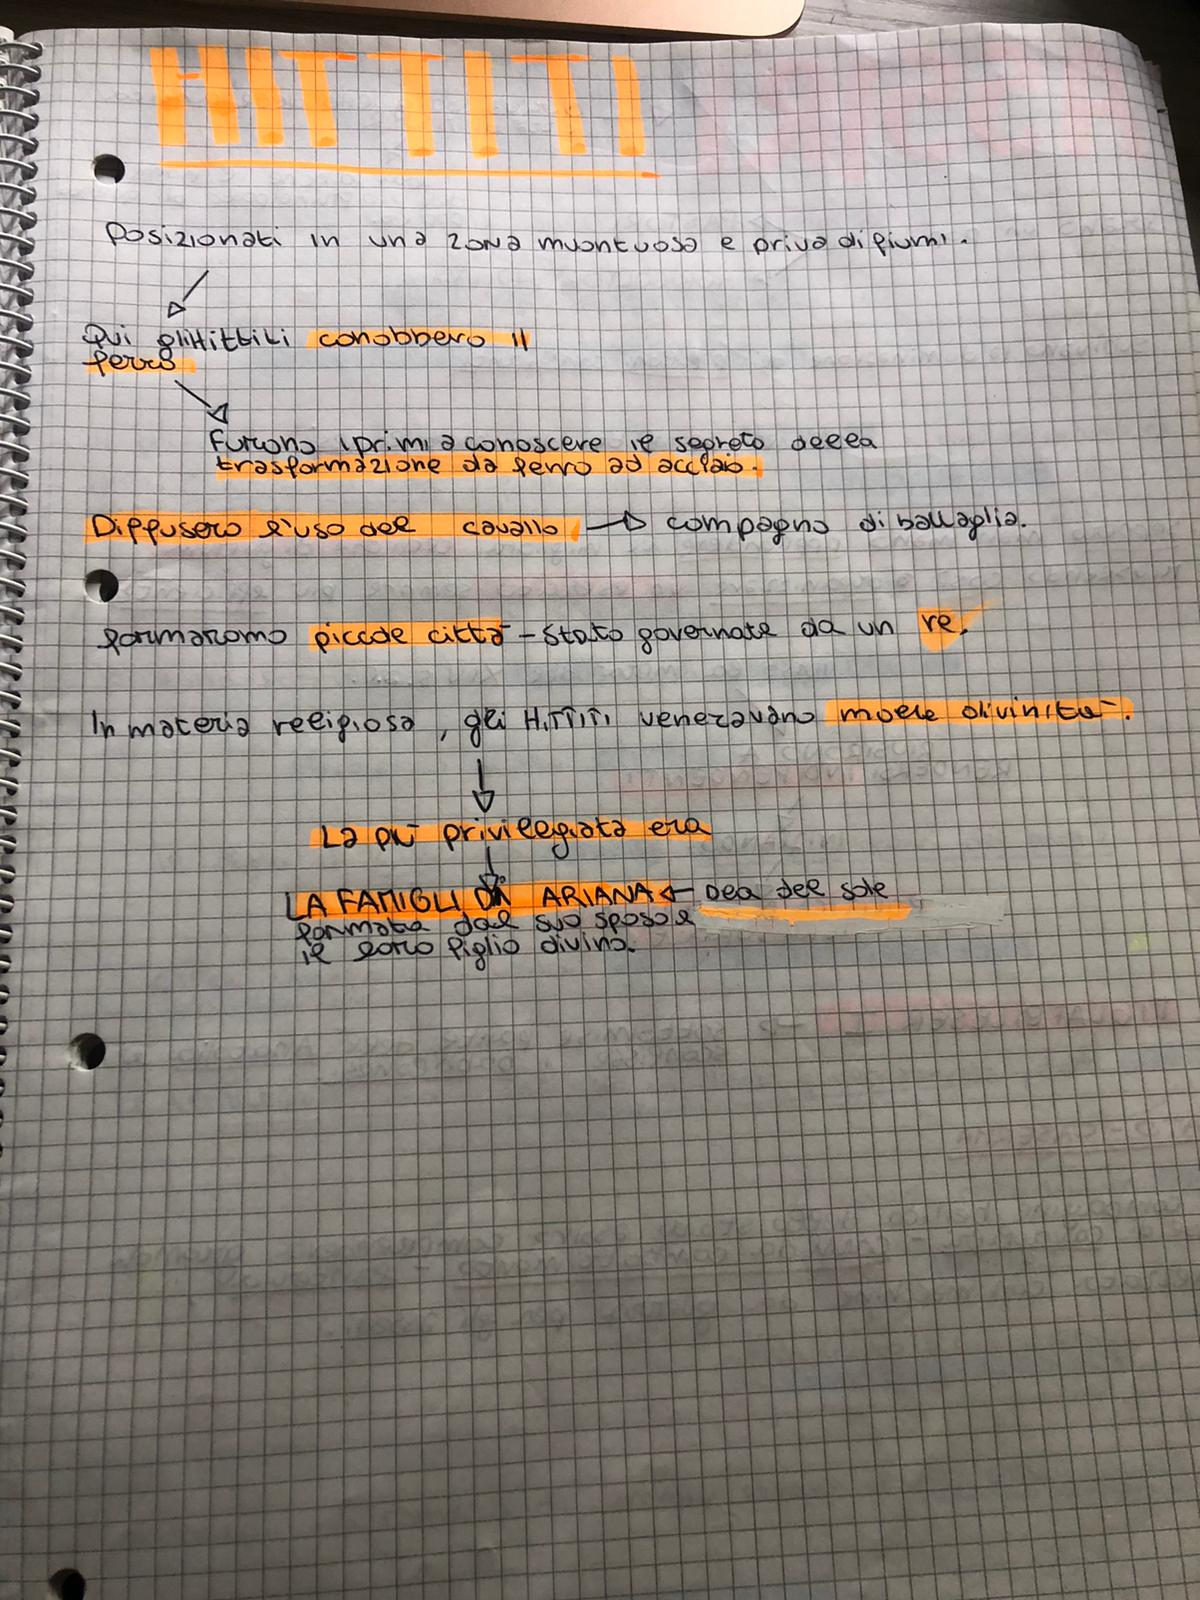 HITTITI
Posizionati in una zona muontuosa e priva di fiumi.
Qui gli Hittiti conobbero il
ferro
Furono i primi a conoscere il segreto della
trasformazione da ferro ad acciaio.
Diffusero l'uso del cavallo → compagno di battaglia.
formarono piccole città - stato governate da un re.
In materia religiosa, gli HITTITI veneravano molte divinità.
La più privilegiata era
LA FAMIGLI DI ARIANA ← Dea del sole
formata dal suo sposo e
il loro figlio divino.